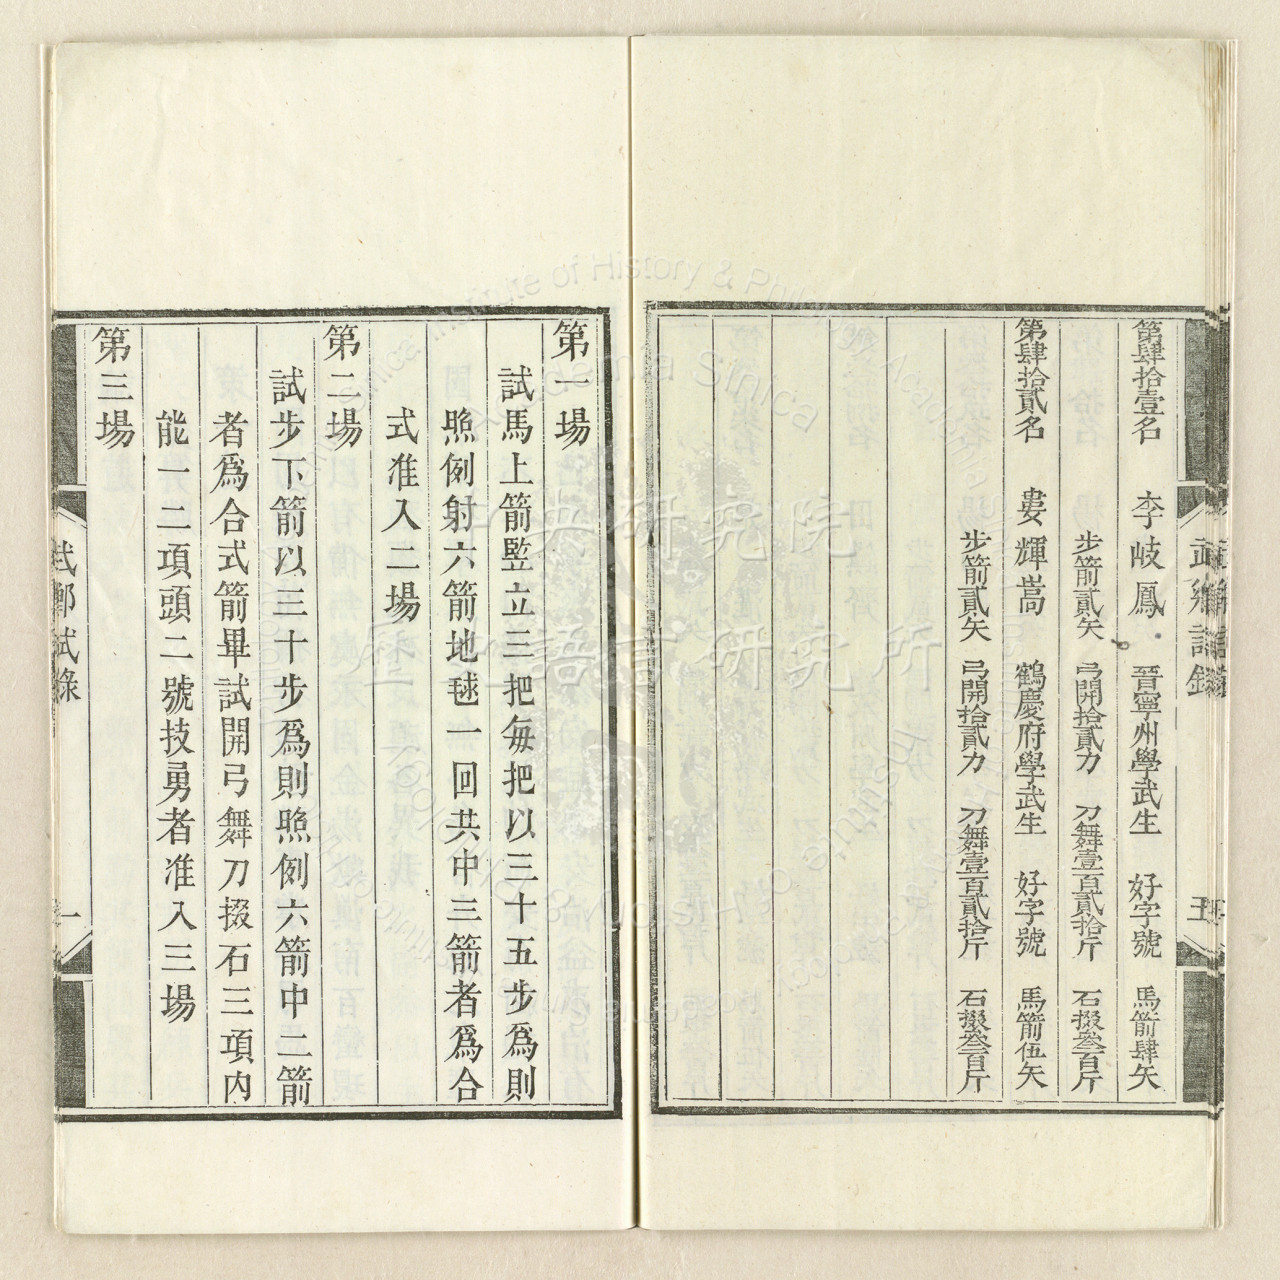 武鄉試錄
五
第肆拾壹名 李岐鳳 晉寧州學武生 好字號 馬箭肆矢
步箭貳矢 弓開拾貳力 刀舞壹百貳拾斤 石掇叁百斤
第肆拾貳名 婁輝嵩 鶴慶府學武生 好字號 馬箭伍矢
步箭貳矢 弓開拾貳力 刀舞壹百貳拾斤 石掇叁百斤
第一場
試馬上箭竪立三把每把以三十五步爲則
照例射六箭地毬一回共中三箭者爲合
式准入二場
第二場
試步下箭以三十步爲則照例六箭中二箭
者爲合式箭畢試開弓舞刀掇石三項內
能一二項頭二號技勇者准入三場
第三場
武鄉試錄
一
中央研究院
歷史語言研究所
Institute of History & Philology, Academia Sinica